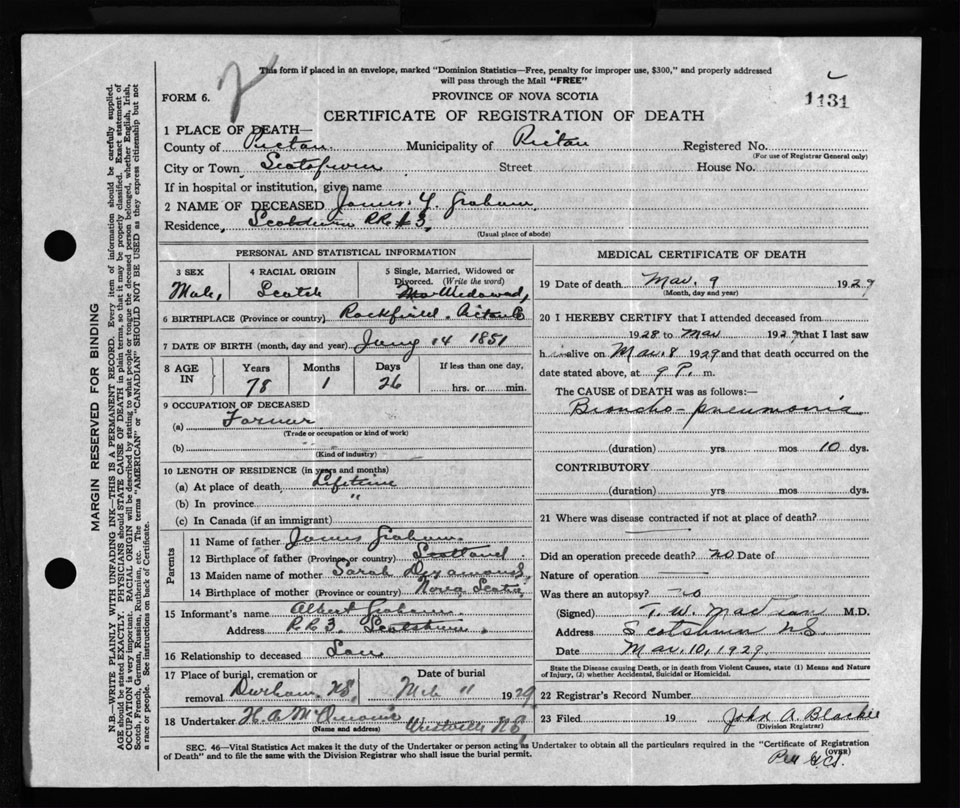 This form if placed in an envelope, marked "Dominion Statistics—Free, penalty for improper use, $300," and properly addressed
will pass through the Mail "FREE"
FORM 6.
PROVINCE OF NOVA SCOTIA
1131
CERTIFICATE OF REGISTRATION OF DEATH
1 PLACE OF DEATH—
County of Pictou Municipality of Pictou Registered No.
(For use of Registrar General only)
City or Town Scotsburn Street House No.
If in hospital or institution, give name
2 NAME OF DECEASED James Y. Graham
Residence, Scotsburn RR #3,
(Usual place of abode)
PERSONAL AND STATISTICAL INFORMATION
3 SEX 4 RACIAL ORIGIN 5 Single, Married, Widowed or
Divorced. (Write the word)
Male, Scotch Widowed,
6 BIRTHPLACE (Province or country) Rockfield. Pictou Co
7 DATE OF BIRTH (month, day and year) 14 1851
8 AGE IN Years Months Days If less than one day,
78 1 26 hrs. or min.
9 OCCUPATION OF DECEASED
(a) Farmer
(Trade or occupation or kind of work)
(b)
(Kind of industry)
10 LENGTH OF RESIDENCE (in years and months)
(a) At place of death Lifetime
(b) In province "
(c) In Canada (if an immigrant)
Parents
11 Name of father James Graham.
12 Birthplace of father (Province or country) Scotland
13 Maiden name of mother Sarah
14 Birthplace of mother (Province or country) Nova Scotia
15 Informant's name Albert Graham.
Address RR3, Scotsburn,
16 Relationship to deceased Son
17 Place of burial, cremation or removal Durham NS, Date of burial Mch 11 1929
18 Undertaker H. A. Westville NS
(Name and address)
MEDICAL CERTIFICATE OF DEATH
19 Date of death Mar. 9 1929
(Month, day and year)
20 I HEREBY CERTIFY that I attended deceased from
1928 to Mar 1929 that I last saw
h alive on Mar. 8 1929 and that death occurred on the
date stated above, at 9 P. m.
The CAUSE OF DEATH was as follows:—
Broncho-pneumonia
(duration) yrs mos 10 dys.
CONTRIBUTORY
(duration) yrs mos dys.
21 Where was disease contracted if not at place of death?
Did an operation precede death? no Date of
Nature of operation
Was there an autopsy? no
(Signed) T. W. M.D.
Address Scotsburn NS
Date Mar, 10, 1929
State the Disease causing Death, or in death from Violent Causes, state (1) Means and Nature
of Injury, (2) whether Accidental, Suicidal or Homicidal.
22 Registrar's Record Number
23 Filed 19 John A. Blackie
(Division Registrar)
SEC. 46—Vital Statistics Act makes it the duty of the Undertaker or person acting as Undertaker to obtain all the particulars required in the "Certificate of Registration
of Death" and to file the same with the Division Registrar who shall issue the burial permit.
(OVER)
MARGIN RESERVED FOR BINDING
N.B.—WRITE PLAINLY WITH UNFADING INK—THIS IS A PERMANENT RECORD. Every item of information should be carefully supplied.
AGE should be stated EXACTLY. PHYSICIANS should STATE CAUSE OF DEATH in plain terms, so that it may be properly classified. Exact statement of
OCCUPATION is very important. RACIAL ORIGIN will be described by stating to what people or tongue the deceased person belonged, whether English, Irish,
Scotch, French, German, Russian, Ruthenian, etc. The terms "AMERICAN" or "CANADIAN" SHOULD NOT BE USED as they express citizenship but not
a race or people. See instructions on back of Certificate.